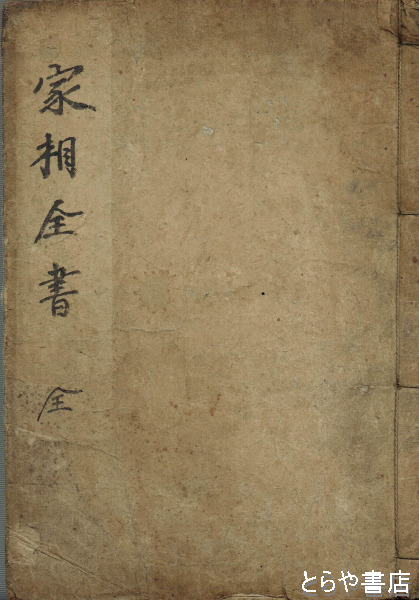 家相全書 全
とらや書店